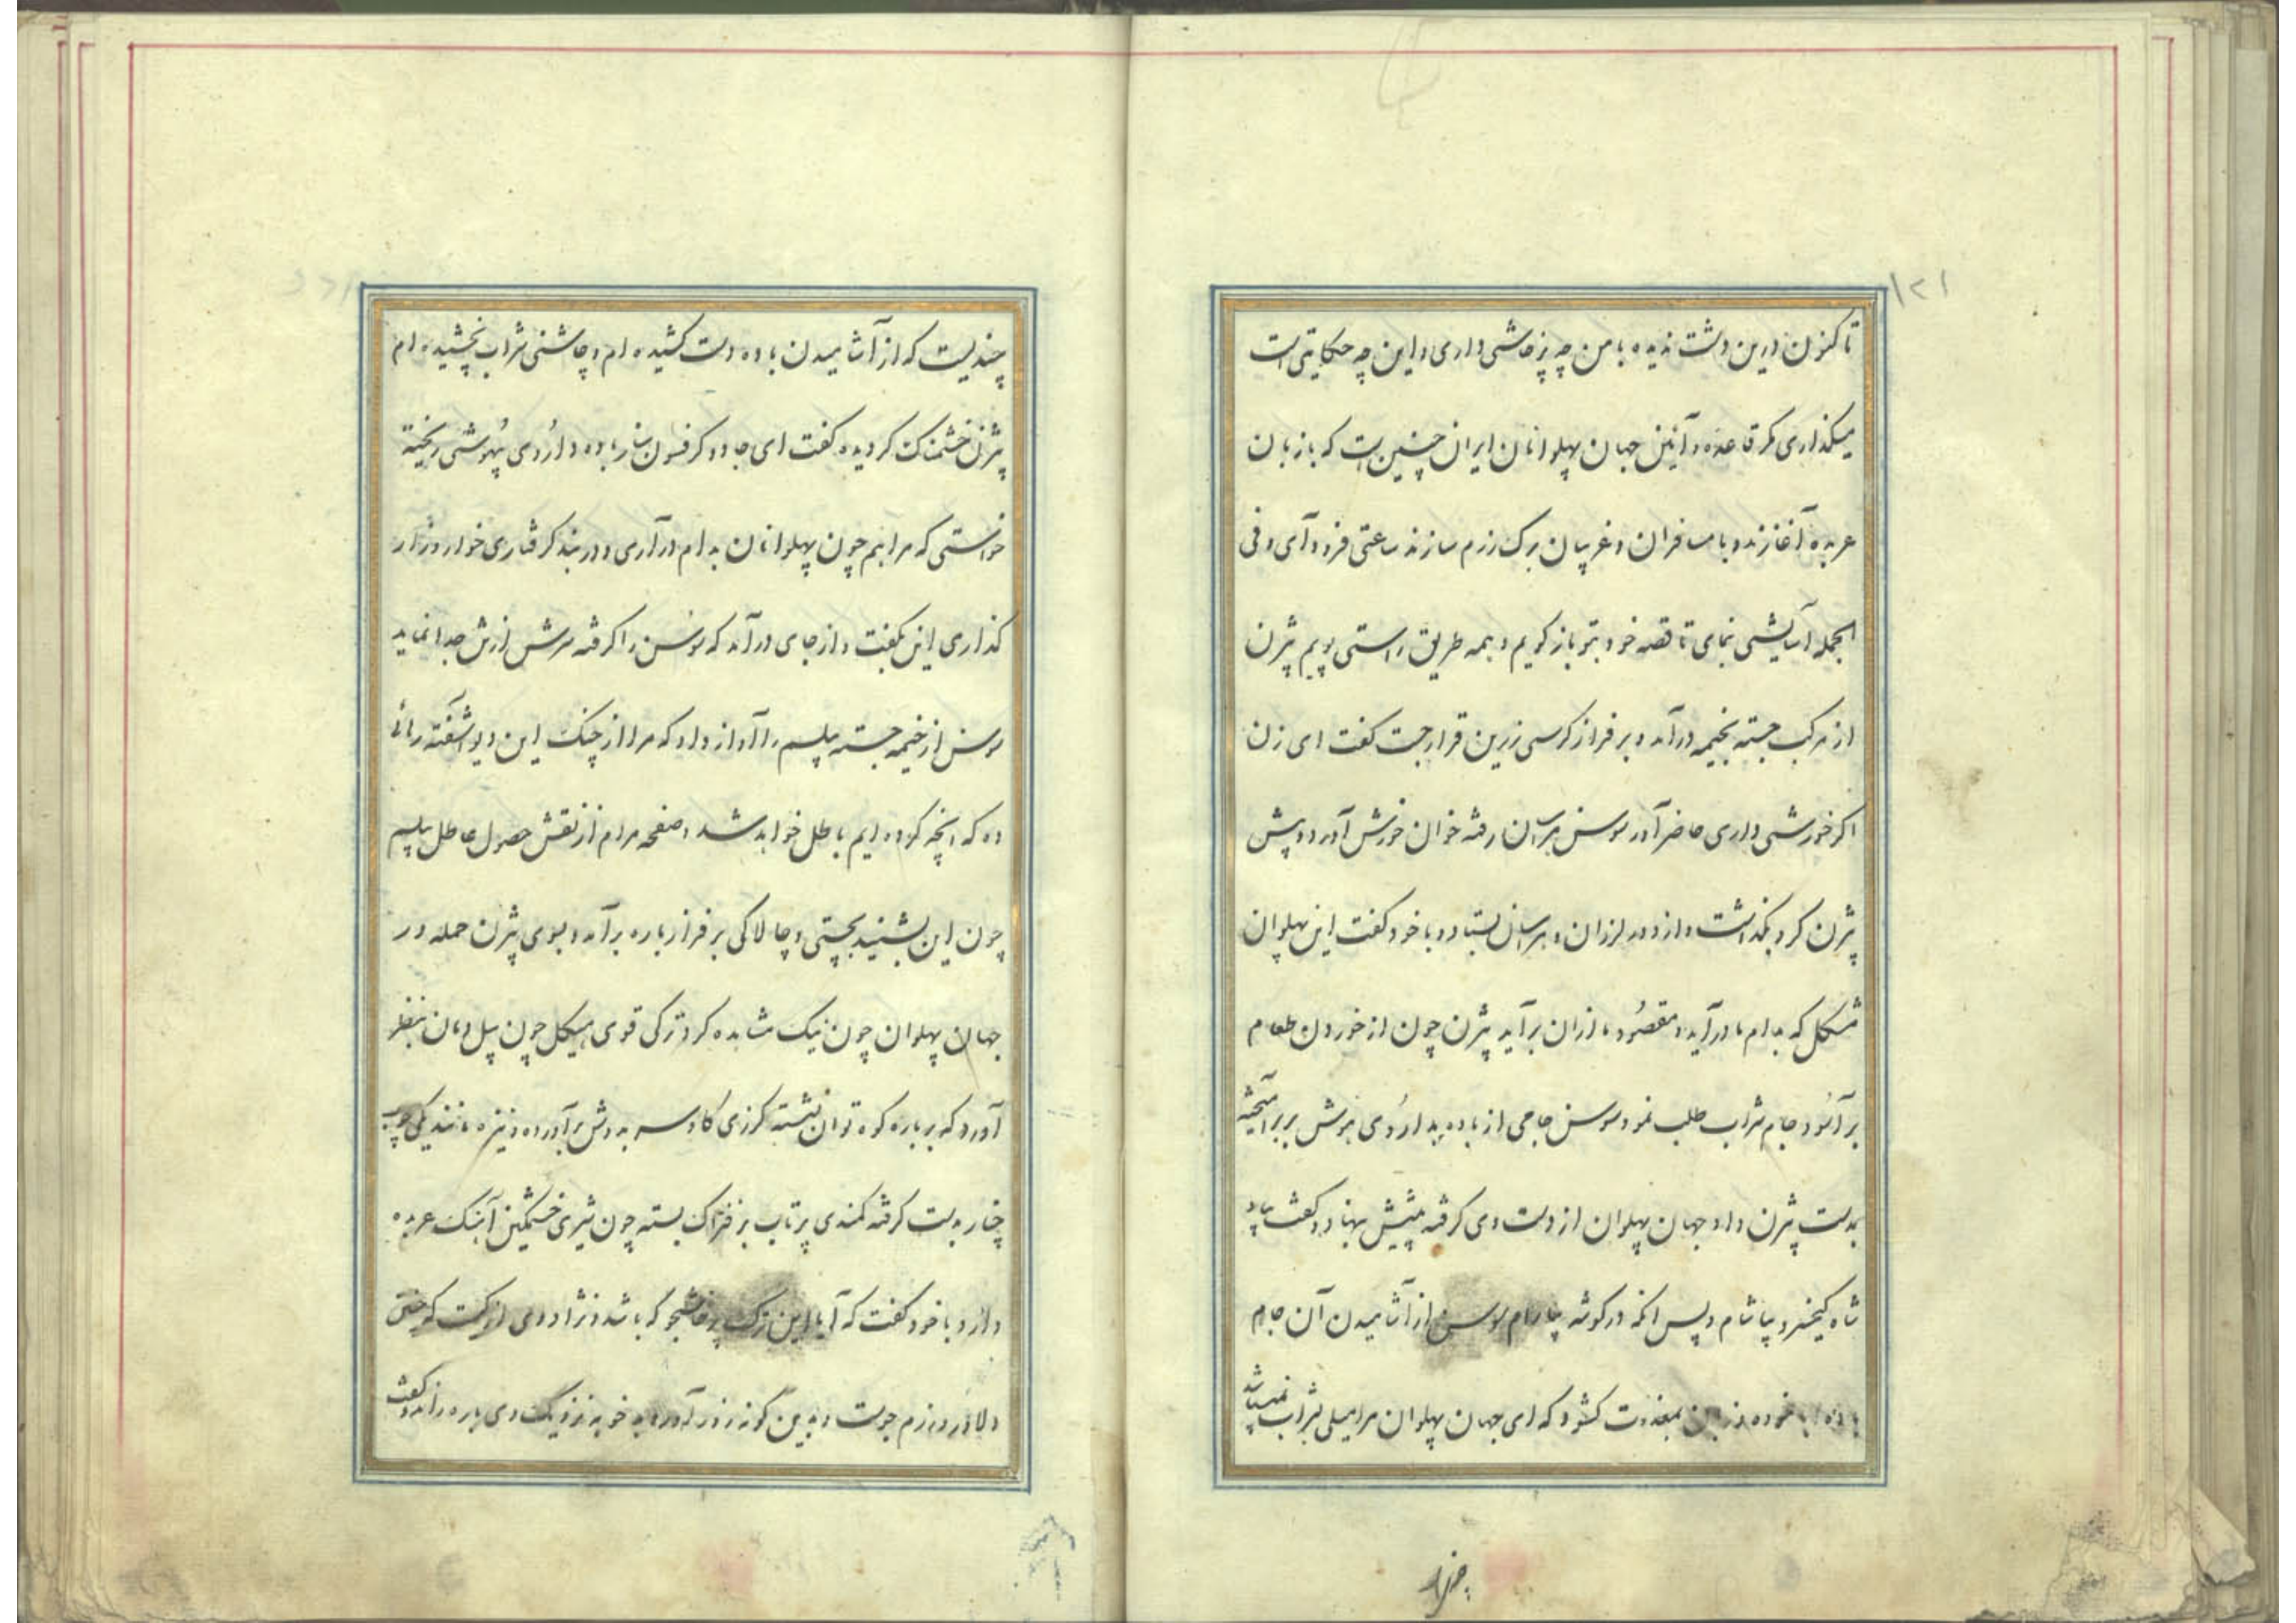 ۱۲۱
تا کنون درین دشت ندیده با من چه پرخاشی داری و این چه حکایتی است
میگذاری مگر قاعده و آئین جهان پهلوانان ایران چنین است که با زنان
عربده آغازند و با مسافران و غریبان برگ رزم سازند ساعتی فرود آی و فی
الجمله آسایشی نمای تا قصه خود بتو باز گویم و همه طریق راستی پویم بیژن
از مرکب جسته بخیمه درآمد و بر فراز کرسی زرین قرار جست گفت ای زن
اگر خورشی داری حاضر آور سوسن هراسان رفته خوان خورش آورد و پیش
بیژن گرد بگذاشت و از دور لرزان و هراسان بستاد و با خود گفت این پهلوان
مشکل که بدام ما درآید و مقصود ما از ان برآید بیژن چون از خوردن طعام
بر آسود جام شراب طلب نمود سوسن جامی از باده بداروی هوش بر برآمیخته
بدست بیژن داد جهان پهلوان از دست وی گرفته پیش بنهاد و گفت بیاد
شاه کیخسرو بیاشام و پس آنگه در گوشه بیارام سوسن از آشامیدن آن جام
باده ابا نموده زبان بمعذرت گشود که ای جهان پهلوان مرا میلی بشراب نمیباشد
چندیست
چندیست که از آشامیدن باده دست کشیده ام و چاشنی شراب نچشیده ام
بیژن خشمناک گردیده گفت ای جادوگر فسون ساز باده و داروی بیهوشی ریخته
خواستی که مرا هم چون پهلوانان بدام درآری و در بند گرفتاری خوار و زار
گذاری این بگفت و از جای درآمد که سوسن را گرفته سرش از تن جدا نماید
سوسن از خیمه جسته پیلسم را آواز داد که مرا از چنگ این دیو آشفته رهائی
ده که آنچه کرده ایم باطل خواهد شد و صفحه مرام از نقش حصول عاطل پیلسم
چون این بشنید بچستی و چالاکی بر فراز باره برآمد و بسوی بیژن حمله ور
جهان پهلوان چون نیک مشاهده کرد ترکی قوی هیکل چون پیل دمان بنظر
آورد که بر باره کوه توان نشسته گرزی گاوسر بدوش برآورده و نیزه مانند یکی چوب
چنار بدست گرفته کمندی پرتاب بر فتراک بسته چون شیری خشمگین آهنگ عربده
دارد با خود گفت که آیا این ترک پرخاشجو که باشد و نژاد وی از کیست که چنین
دلاور و رزم جوست و بدین گونه زور آور و بدخو به نزدیک وی باره راند و گفت